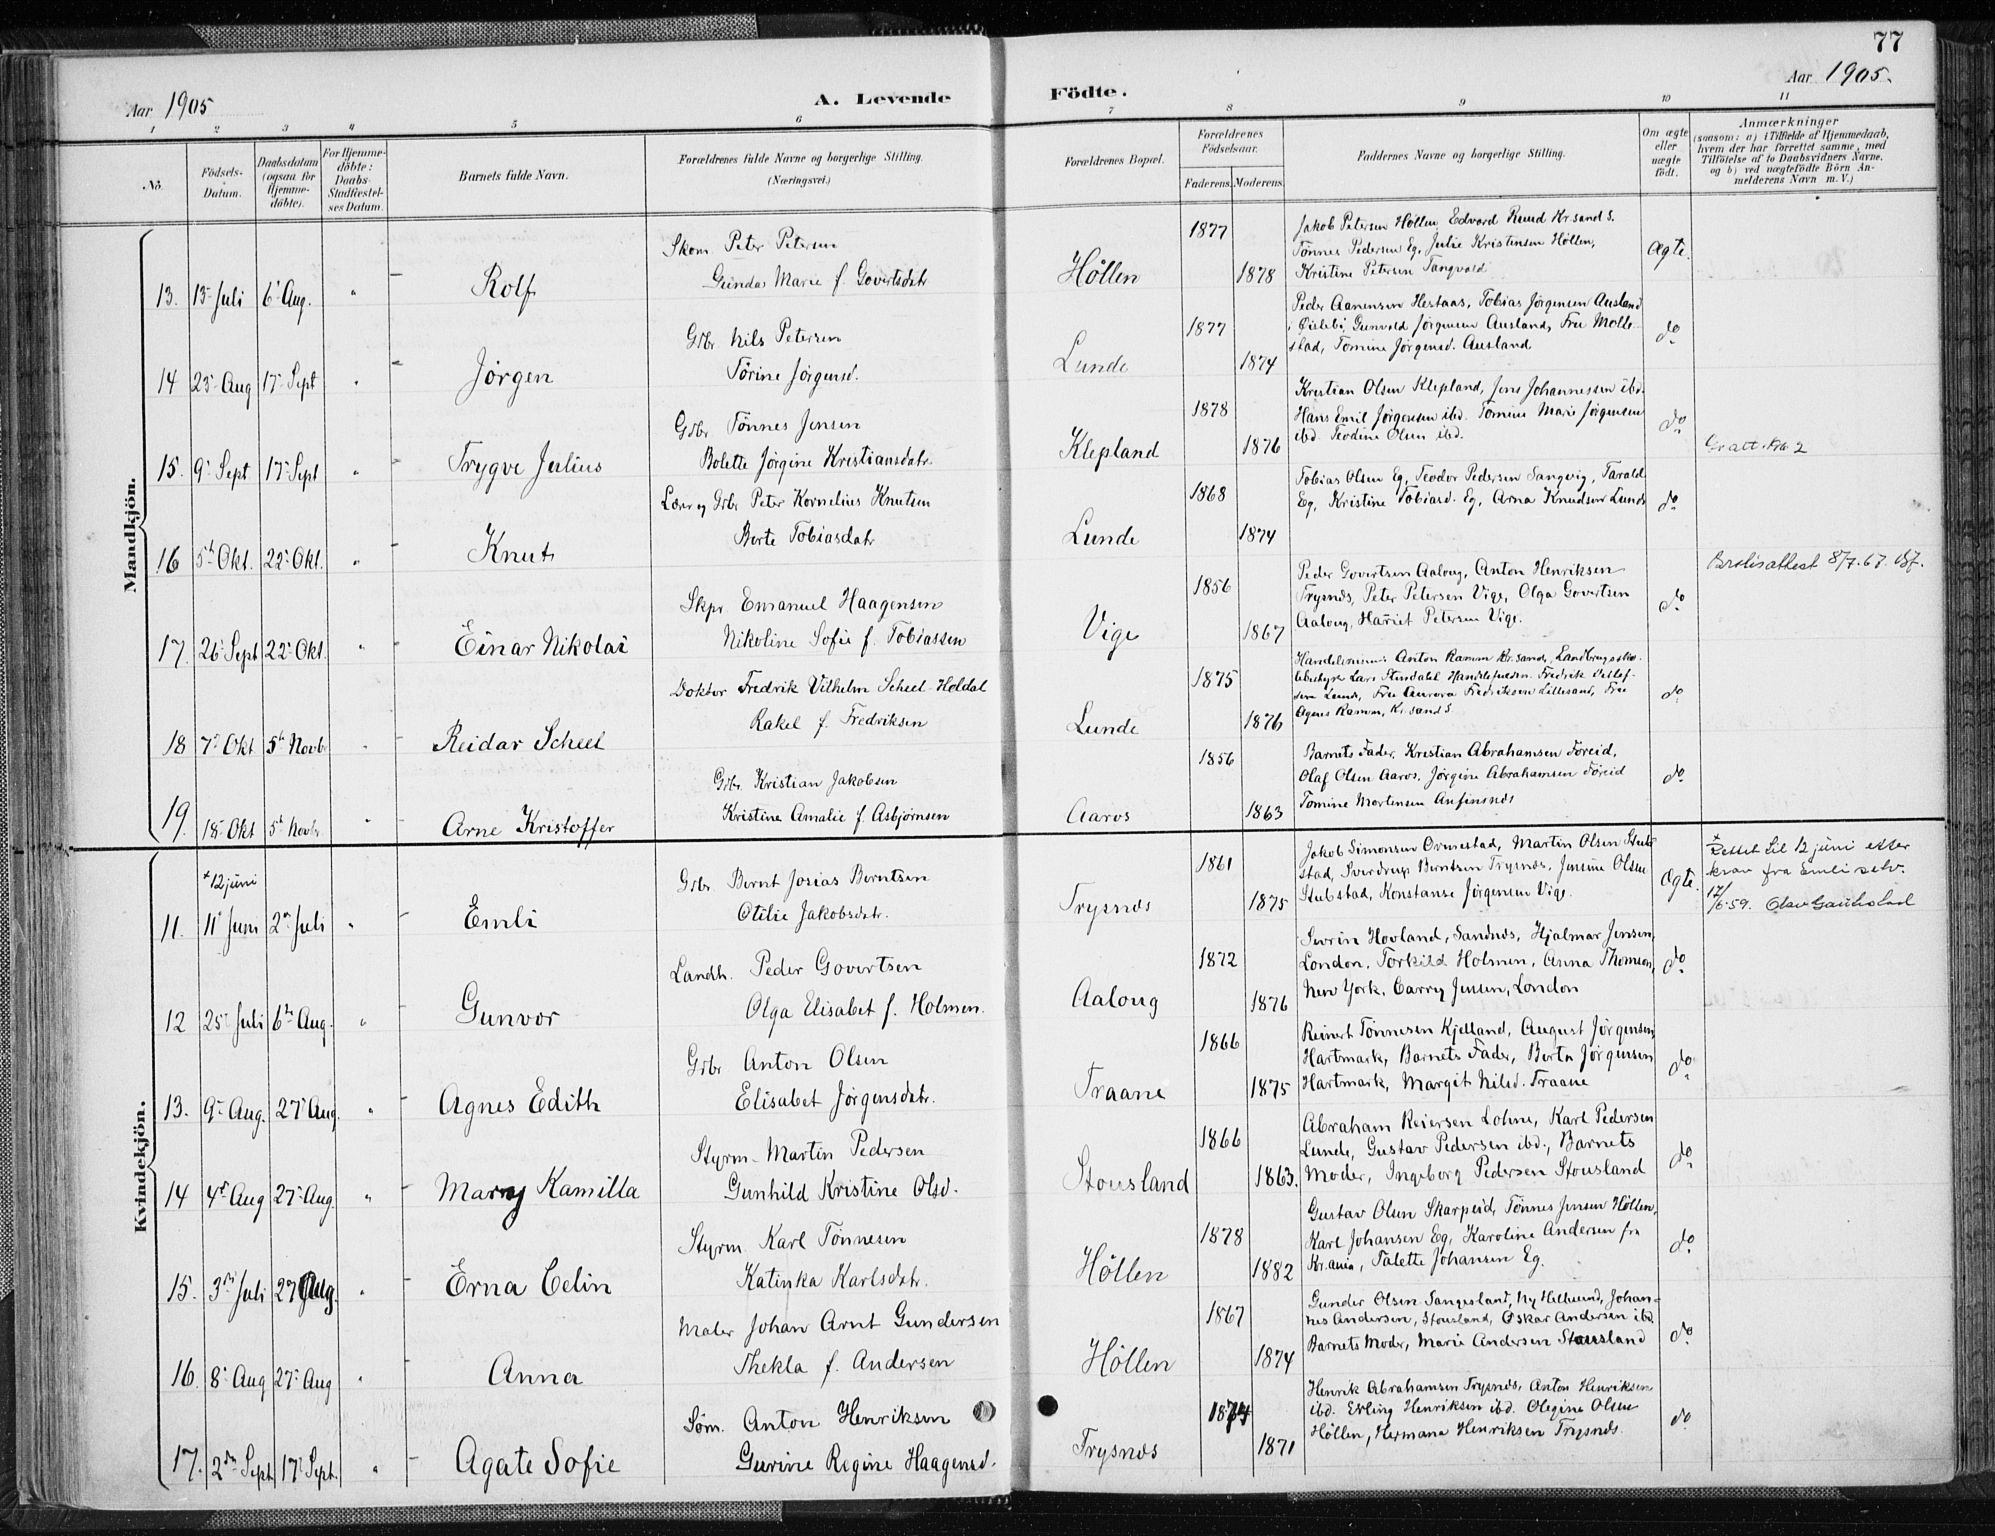 77
Aar 1905
A. Levende
Födte.
Aar 1905.
1 2 3 4 5 6 7 8 9 10 11
No.
Födsels-Datum.
Daabsdatum (ogsaa for Hjemme-döbte).
For Hjemme-döbte: Daabs-Stadfæstel-ses Datum.
Barnets fulde Navn.
Forældrenes fulde Navne og borgerlige Stilling. (Næringsvei.)
Forældrenes Bopæl.
Forældrenes Födselsaar.
Faderens. Moderens.
Faddernes Navne og borgerlige Stilling.
Om ægte eller uægte födt.
Anmærkninger
(saasom: a) i Tilfælde af Hjemmedaab,
hvem der har forrettet samme, med
Tilföielse af to Daabsvidners Navne,
og b) ved uægtefödte Börn An-
melderens Navn m. V.)
Mandkjön.
Skom. Peter Petersen 1877 Jakob Petersen Höllen, Edvard Ruud Kr.sand S.
Tönnes Pedersen Eg, Julie Kristensen Höllen,
13. 15 Juli 6 Aug. " Rolf Gunda Marie f. Govertsdatr Höllen 1878 Kristine Petersen Tangvald Ægte.
Gbr Nils Petersen 1877 Peder Aanensen Hestaas, Tobias Jörgensen Ausland
i Öislebö, Gunvald Jörgensen Ausland, Fru Molle-
14 23 Aug 17 Sept " Jörgen Törine Jörgensd. Lunde 1874 stad, Tomine Jörgensd. Ausland do
Gbr Tönnes Jensen 1878 Kristian Olsen Klepland, Jens Johannessen ibd.
Hans Emil Jörgensen ibd. Tomine Marie Jörgensen
15. 9 Sept 17 Sept " Trygve Julius Bolette Jörgine Kristiansdatr. Klepland 1876 ibd. Teodine Olsen ibd. do
Lærer og Gbr Peter Kornelius Knutsen 1868 Tobias Olsen Eg, Teodor Pedersen Sangvig, Tarald
Eg, Kristine Tobiasd. Eg, Arna Knudsen Lunde
16 5t Okt. 22 Okt. " Knut Berte Tobiasdatr Lunde 1874 do
8/7.67.
Skpr. Emanuel Haagensen 1856 Peder Govertsen Aalong, Anton Henriksen
Trysnes, Peter Petersen Vige, Olga Govertsen
17. 26 Sept 22 Okt. " Einar Nikolai Nikoline Sofie f. Tobiassen Vige 1867 Aalong, Hariet Petersen Vige. do
Doktor Fredrik Vilhelm Scheel-Holdal 1875 Anton Ramm Kr.sand,
Lunde, Fru Aurora Fredriksen Lillesand, Fru
18 7 Okt 5t Novbr " Reidar Scheel Rakel f. Fredriksen Lunde 1876 Agnes Ramm, Kr.sand S. do
Gbr. Kristian Jakobsen 1856 Barnets Fader, Kristian Abrahamsen Föreid,
Olaf Olsen Aaros, Jörgine Abrahamsen Föreid
19. 18 Okt 5t Novbr. " Arne Kristoffer Kristine Amalie f. Asbjörnsen Aaros 1863 Tomine Mortensen Anfinsnes do
Kvindekjön.
x 12 juni
Gbr. Bernt Josias Berntsen 1861 Jakob Simonsen Ormestad, Martin Olsen Stub-
stad, Sverdrup Berntsen Trysnes, Jensine Olsen
11. 11 Juni 2n Juli " Emli Otilie Jakobsdatr. Trysnes 1875 Stubstad, Konstanse Jörgensen Vige. Ægte.
x Rettet til 12 juni etter
krav fra Emli selv.
12/6.59.
Landh. Peder Govertsen 1872 Severin Hovland, Sandnes, Hjalmar Jensen,
London, Torkild Holmen, Anna Thomson,
12 25 Juli 6te Aug. " Gunvor Olga Elisabet f. Holmen. Aalong 1876 New York, Carry Jensen, London do
Gbr Anton Olsen 1866 Reinert Tönnesen Kjelland, August Jörgensen,
Hartmark, Barnets Fader, Berta Jörgensen
13. 9 Aug. 27 Aug. " Agnes Edith Elisabet Jörgensdatr. Traane 1875 Hartmark, Margit Nilsd. Traane do
Styrm. Martin Pedersen 1866 Abraham Reiersen Lohne, Karl Pedersen
Lunde, Gustav Pedersen ibd., Barnets
14 4de Aug 27 Aug " Mary Kamilla Gunhild Kristine Olsd. Stousland 1863. Moder, Ingeborg Pedersen Stousland do
Styrm Karl Tönnesen 1878 Gustav Olsen Skarpeid, Tönnes Jensen Höllen,
Karl Johansen Eg, Karoline Andersen fra
15. 3die Juli 27 Aug. " Erna Celin Katinka Karlsdatr. Höllen 1882 Kr.ania, Talette Johansen Eg. do
Maler Johan Arnt Gundersen 1867 Gunder Olsen Songesland, Ny Hellesund, Johan-
nes Andersen, Stousland, Oskar Andersen ibd.
16. 8 Aug 27 Aug " Anna Thekla f. Andersen Höllen 1874 Barnets Moder, Marie Andersen Stousland do
Söm. Anton Henriksen 1874 Henrik Abrahamsen Trysnes, Anton Henriksen
ibd. Erling Henriksen ibd. Olegine Olsen
17. 2den Sept 17 Sept. " Agate Sofie Gurine Regine Haagensd. Trysnes 1871 Höllen, Hermana Henriksen Trysnes. do